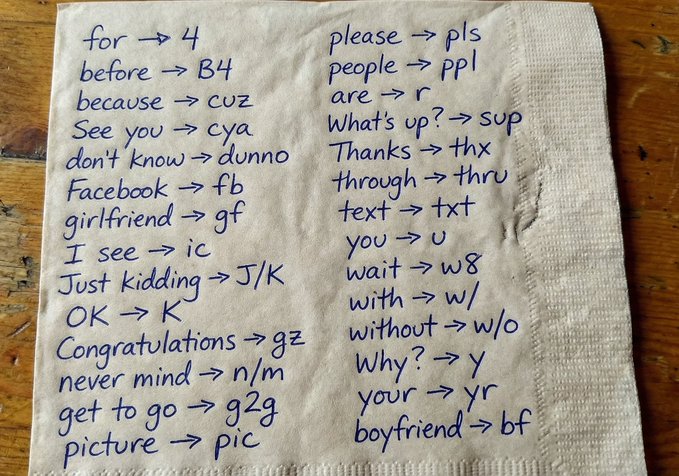 for → 4
before → B4
because → cuz
See you → cya
don't know → dunno
Facebook → fb
girlfriend → gf
I see → ic
Just kidding → J/K
OK → K
Congratulations → gz
never mind → n/m
get to go → g2g
picture → pic
please → pls
people → ppl
are → r
What's up? → sup
Thanks → thx
through → thru
text → txt
you → u
wait → w8
with → w/
without → w/o
Why? → y
your → yr
boyfriend → bf